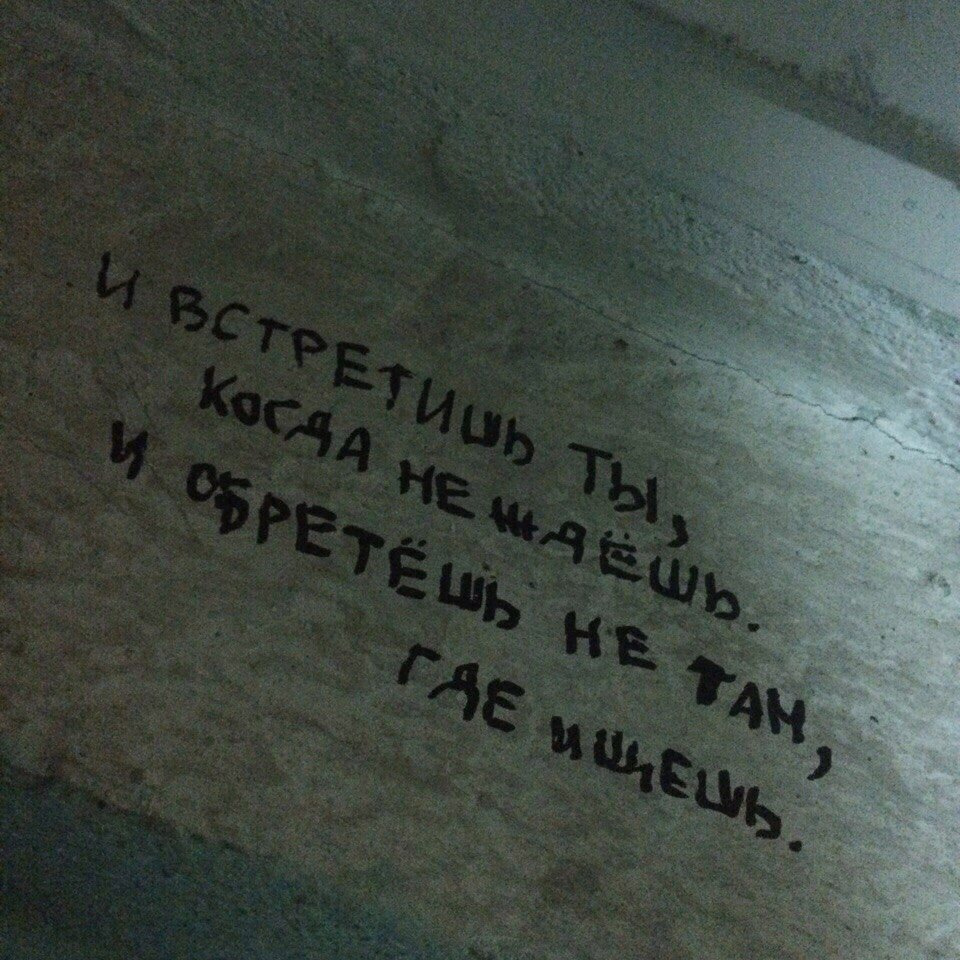 И ВСТРЕТИШЬ ТЫ,
КОГДА НЕ ЖДЁШЬ.
И ОБРЕТЁШЬ НЕ ТАМ,
ГДЕ ИЩЕШЬ.